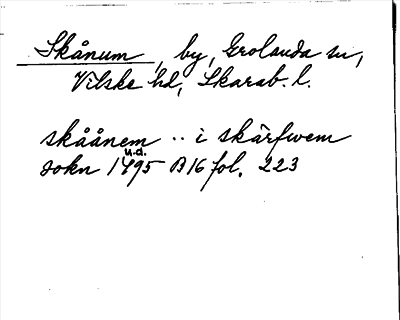 Skånum, by, Grolanda sn,
Vilske hd, Skarab. l.
skåånem .. i skärfwem
sokn 1495 u.d. B16 fol. 223